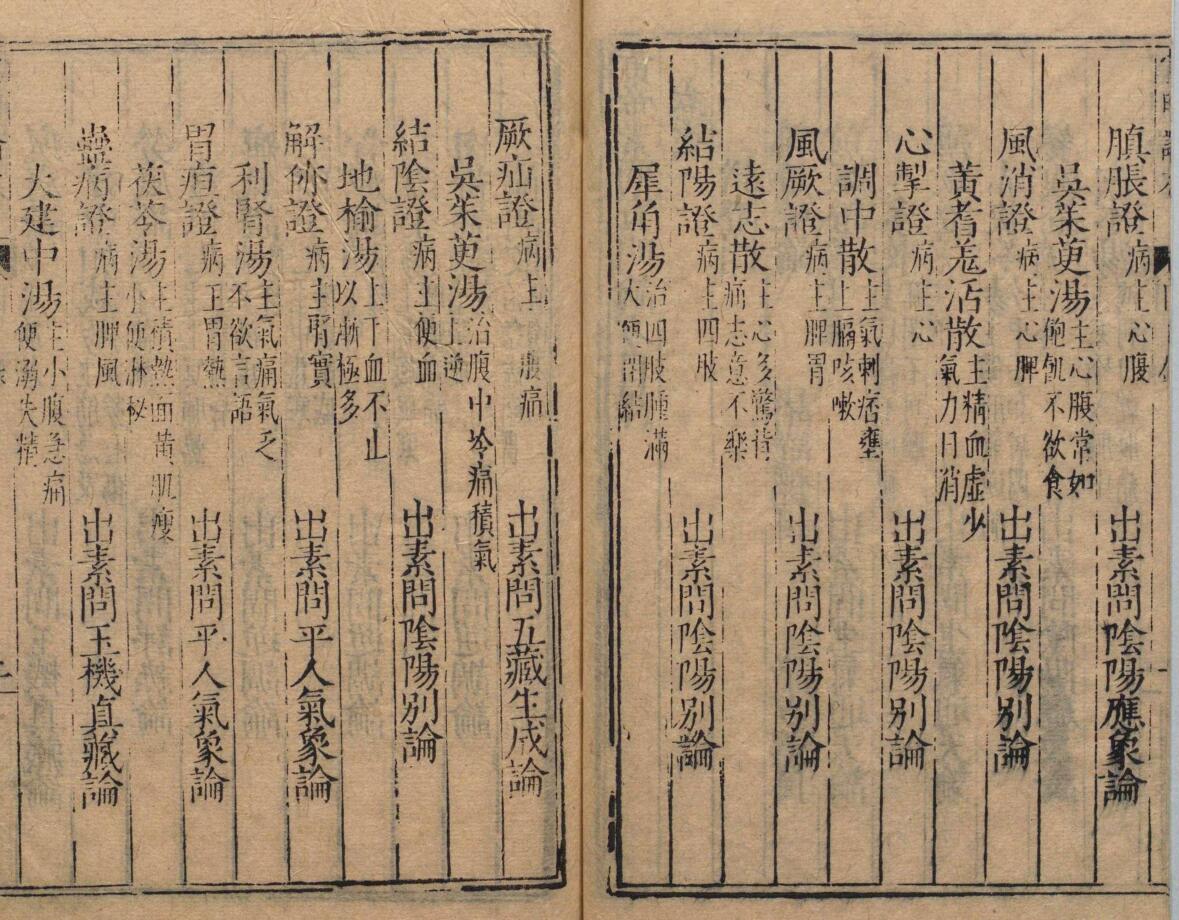 䐜脹證病主心腹 出素問陰陽應象論
吳茱萸湯主心腹常如飽飢不欲食
風消證病主心脾 出素問陰陽別論
黃耆羗活散主精血虛少氣力日消
心掣證病主心 出素問陰陽別論
調中散主氣刺痞壅上膈咳嗽
風厥證病主脾胃 出素問陰陽別論
遠志散主心多驚背痛志意不樂
結陽證病主四肢 出素問陰陽別論
犀角湯治四肢腫滿大便閉結
厥疝證病主腹痛 出素問五藏生成論
吳茱萸湯治腹中冷痛積氣上逆
結陰證病主便血 出素問陰陽別論
地榆湯主下血不止以漸極多
解㑊證病主腎實 出素問平人氣象論
利腎湯主氣痛氣乏不欲言語
胃疸證病主胃熱 出素問平人氣象論
茯苓湯主積熱面黃肌瘦小便淋秘
蠱病證病主脾風 出素問玉機真藏論
大建中湯主小腹急痛便溺失精